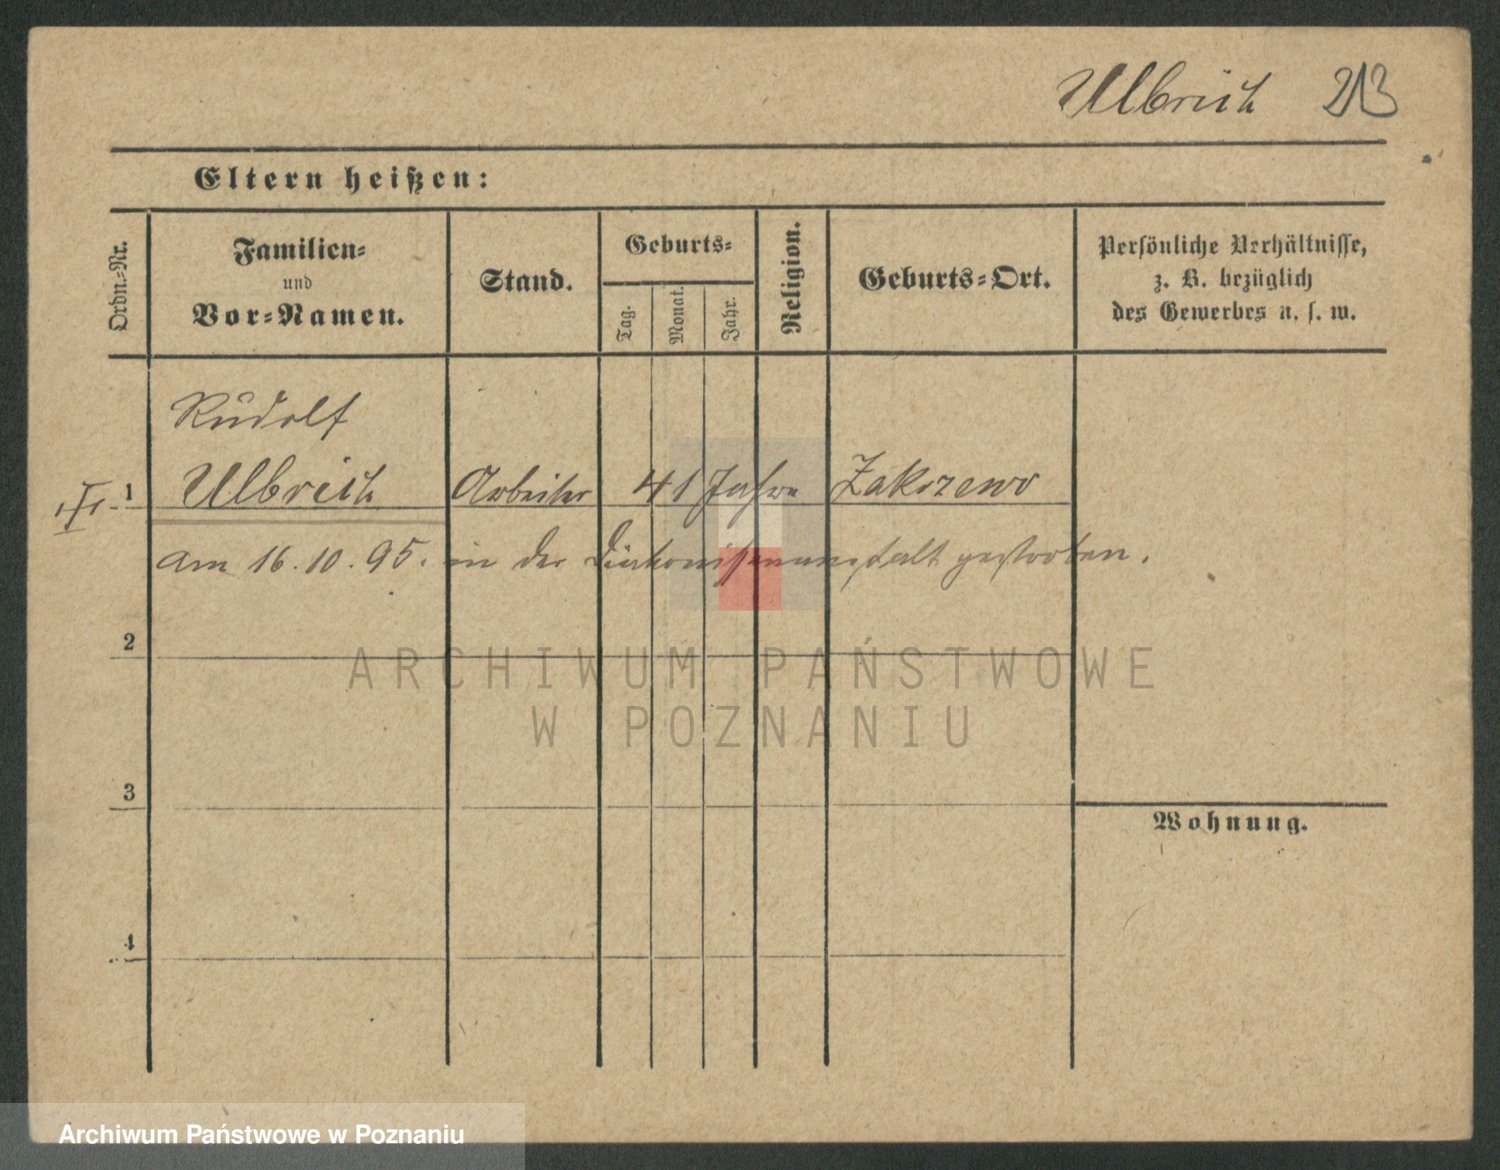 Ulbrich 213
Eltern heißen:
Ordn.=Nr.
Familien=
und
Vor=Namen.
Stand.
Geburts=
Tag.
Monat.
Jahr.
Religion.
Geburts=Ort.
Persönliche Verhältnisse,
z. B. bezüglich
des Gewerbes u. s. w.
Rudolf
1 Ulbrich Arbeiter 41 Jahre Zakrzewo
am 16.10.95. in der Diakonissenanstalt gestorben.
2
ARCHIWUM PAŃSTWOWE
W POZNANIU
3
Wohnung.
4
Archiwum Państwowe w Poznaniu